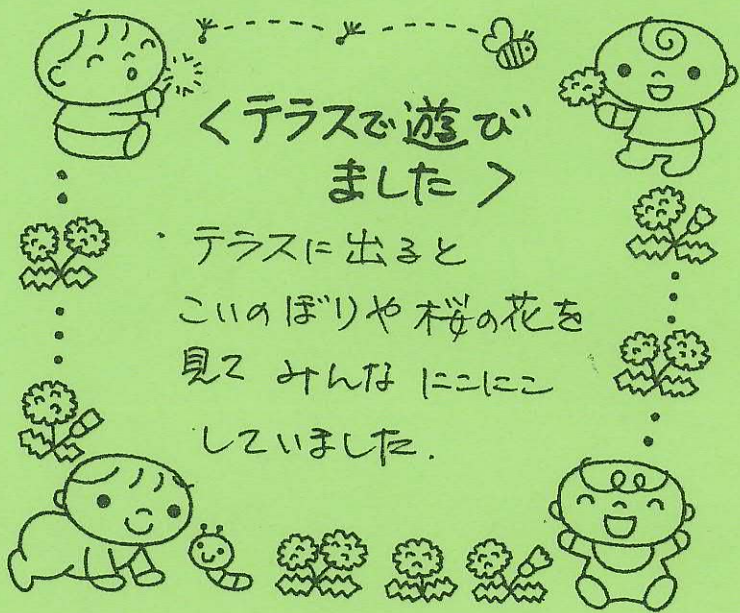 <テラスで遊び
ました>
・テラスに出ると
こいのぼりや桜の花を
見て みんな にこにこ
していました.